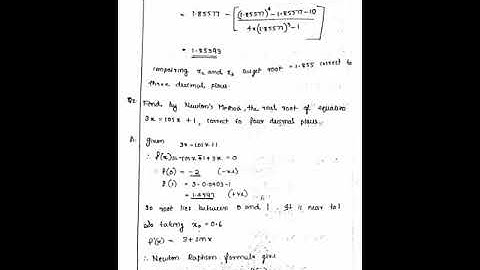 = 1.85577 - [ (1.85577)⁴ - 1.85577 - 10 / 4x(1.85577)³ - 1 ]
= 1.85593
comparing x₂ and x₃ target root = 1.855 correct to
three decimal places.
Q2. Find by Newton's Method, the real root of equation
3x = cosx + 1, correct to four decimal places.
A. given 3x - cosx
∴ f(x) = 3x = 0
∴ f(0) = -2 (-ve)
f(1) = 3 - 0.5403 - 1
= 1.4597 (+ve)
so root lies between 0 and 1. It is near to 1
also taking x₀ = 0.6
f'(x) = 3 + sinx
∴ Newton Raphson formula give